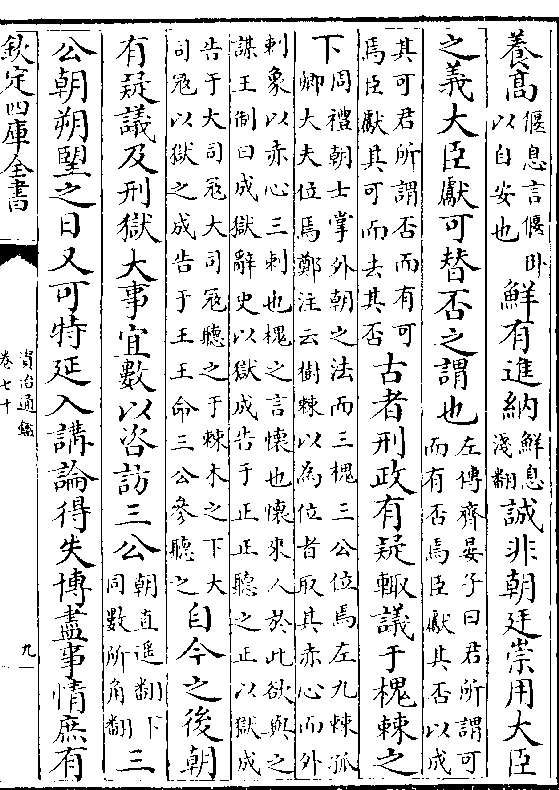 養高偃息言偃卧以自安也鮮有進納鮮息淺翻誠非朝廷崇用大臣
之義大臣獻可替否之謂也左傳齊晏子曰君所謂可而有否焉臣獻其否以成
其可君所謂否而有可焉臣獻其可而去其否古者刑政有疑輙議于槐棘之
下周禮朝士掌外朝之法而三槐三公位焉左九棘孤卿大夫位焉鄭注云樹棘以為位者取其赤心而外
刺象以赤心三刺也槐之言懷也懷來人於此欲與之謀王制曰成獄辭史以獄成告于正正聽之正以獄成
告于大司冦大司冦聽之于棘木之下大司冦以獄之成告于王王命三公參聽之自今之後朝
有疑議及刑獄大事宜數以咨訪三公朝直遥翻下同數所角翻三
公朝朔望之日又可特延入講論得失博盡事情庶有
欽定四庫全書
資治通鑑
卷七十
九